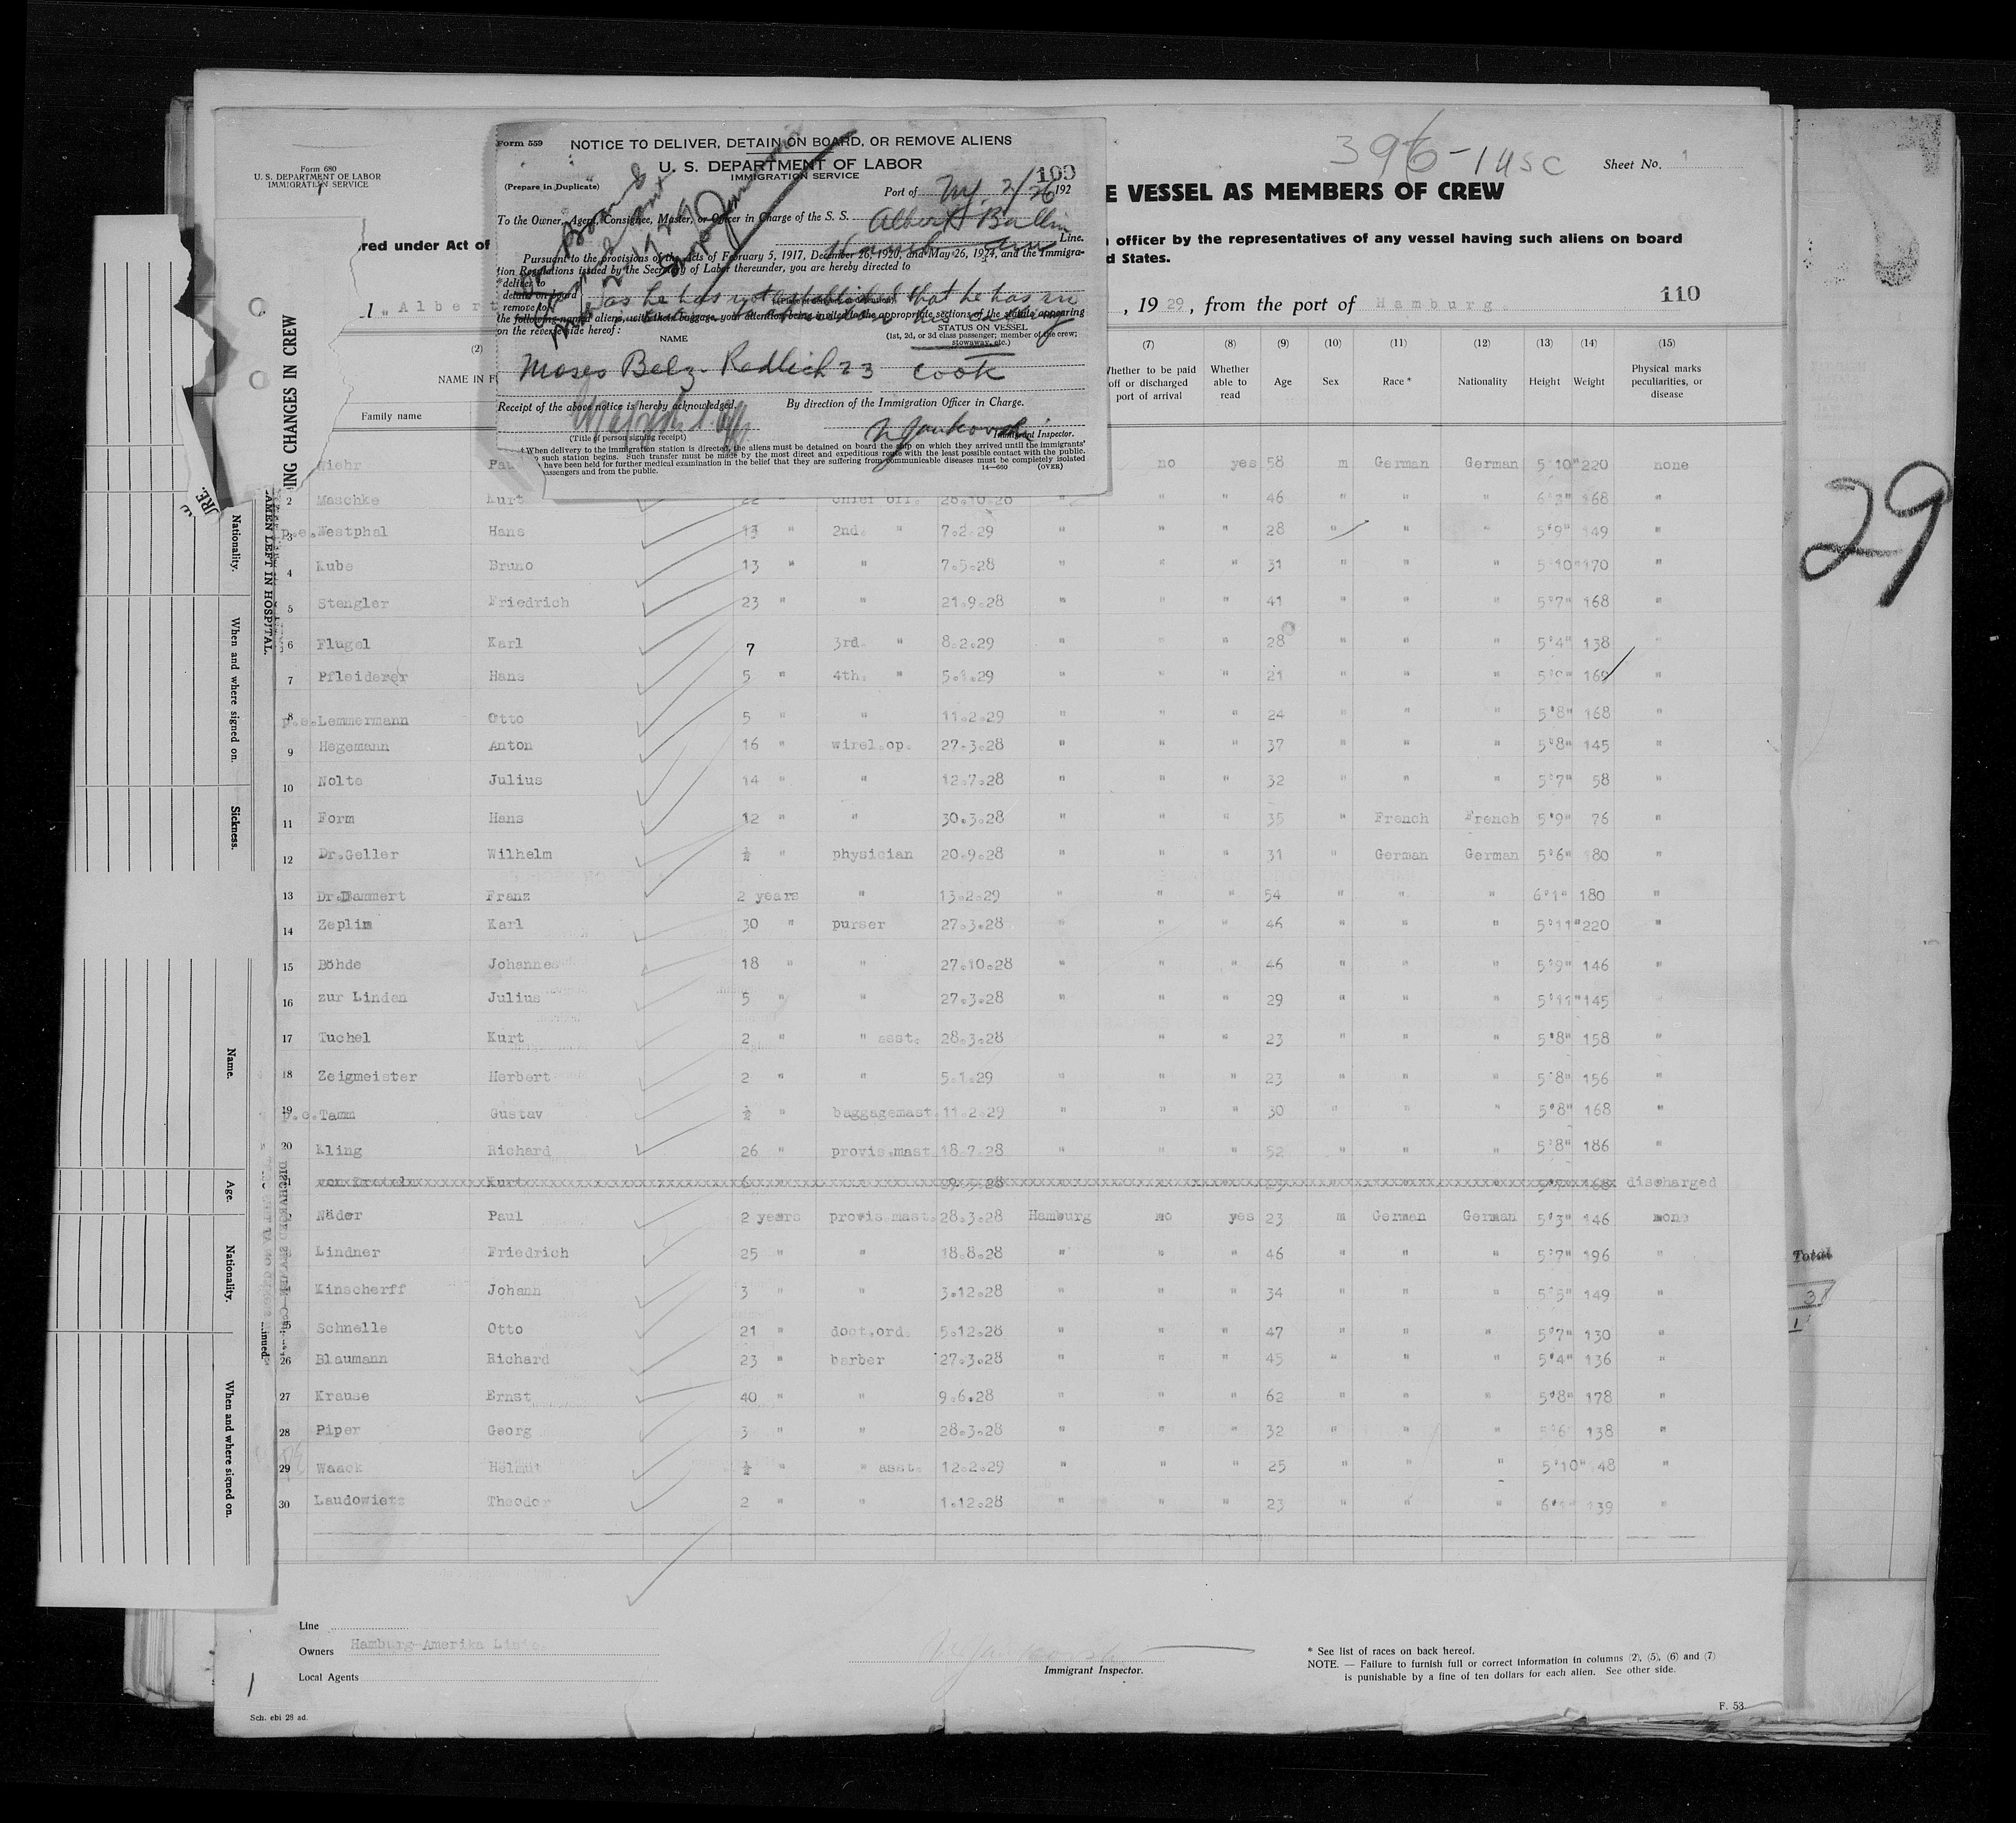 396-1 USC
Form 680
U. S. DEPARTMENT OF LABOR
IMMIGRATION SERVICE
Sheet No. 1
E VESSEL AS MEMBERS OF CREW
red under Act of
officer by the representatives of any vessel having such aliens on board
d States.
110
l „ Albert
, 19 29, from the port of Hamburg.
Form 559 NOTICE TO DELIVER, DETAIN ON BOARD, OR REMOVE ALIENS
U. S. DEPARTMENT OF LABOR
IMMIGRATION SERVICE
100
(Prepare in Duplicate)
Port of Ny. 2/26 192
To the Owner, Agent, Consignee, Master, or Officer in Charge of the S. S. Albert Ballin
Line.
Pursuant to the provisions of the Acts of February 5, 1917, December 26, 1920, and May 26, 1924, and the Immigra-
tion Regulations issued by the Secretary of Labor thereunder, you are hereby directed to
deliver to
detain on board
remove to
as he has not established that he has no
the following-named aliens, with their baggage, your attention being invited to the appropriate sections of the statute appearing
on the reverse side hereof:
STATUS ON VESSEL
NAME
(1st, 2d, or 3d class passenger; member of the crew;
stowaway, etc.)
Moses Belz-Redlich 23 cook
Receipt of the above notice is hereby acknowledged.
By direction of the Immigration Officer in Charge.
(Title of person signing receipt)
Immigrant Inspector.
When delivery to the immigration station is directed, the aliens must be detained on board the ship on which they arrived until the immigrants'
such station begins. Such transfer must be made by the most direct and expeditious route with the least possible contact with the public.
have been held for further medical examination in the belief that they are suffering from communicable diseases must be completely isolated
passengers and from the public.
14—660 (OVER)
(2)
NAME IN F
Family name
(7) (8) (9) (10) (11) (12) (13) (14) (15)
Whether to be paid off or discharged port of arrival
Whether able to read
Age
Sex
Race *
Nationality
Height
Weight
Physical marks peculiarities, or disease
Wiehr Pau no yes 58 m German German 5'10" 220 none
2 Maschke Kurt 22 " chief off. 28.10.28 " " " 46 " " " 6'3" 168 "
p.e. 3 Westphal Hans 13 " 2nd. " 7.2.29 " " " 28 " " " 5'9" 149 "
4 Kube Bruno 13 " " 7.5.28 " " " 31 " " " 5'10" 170 "
5 Stengler Friedrich 23 " " 21.9.28 " " " 41 " " " 5'7" 168 "
6 Flugel Karl 7 3rd. " 8.2.29 " " " 28 " " " 5'4" 138 "
7 Pfleiderer Hans 5 " 4th. " 5.1.29 " " " 21 " " " 169 "
p.e. 8 Lemmermann Otto 5 " " 11.2.29 " " " 24 " " " 5'8" 168 "
9 Hegemann Anton 16 " wirel.op. 27.3.28 " " " 37 " " " 5'8" 145 "
10 Nolte Julius 14 " " 12.7.28 " " " 32 " " " 5'7" 58 "
11 Form Hans 12 " " 30.3.28 " " " 35 " French French 5'9" 76 "
12 Dr.Geller Wilhelm ½ " physician 20.9.28 " " " 31 " German German 5'6" 180 "
13 Dr.Dammert Franz 2 years " 13.2.29 " " 54 " " " 6'1" 180 "
14 Zeplin Karl 30 " purser 27.3.28 " " " 46 " " " 5'11" 220 "
15 Böhde Johannes 18 " " 27.10.28 " " " 46 " " " 5'9" 146 "
16 zur Linden Julius 5 " " 27.3.28 " " " 29 " " " 5'11" 145 "
17 Tuchel Kurt 2 " " asst. 28.3.28 " " 23 " " " 5'8" 158 "
18 Zeigmeister Herbert 2 " " 5.1.29 " " " 23 " " " 5'8" 156 "
p.e. 19 Tamm Gustav ½ " baggagemast. 11.2.29 " " " 30 " " " 5'8" 168 "
20 Kling Richard 26 " provis.mast. 18.7.28 " " " 52 " " " 5'8" 186 "
Kurt 6 168 discharged
Näder Paul 2 years provis.mast. 28.3.28 Hamburg no yes 23 m German German 5'3" 146 none
Lindner Friedrich 25 " " 18.8.28 " " " 46 " " " 5'7" 196 "
Kinscherff Johann 3 " " 3.12.28 " " " 34 " " " 5'5" 149 "
Schnelle Otto 21 " doct.ord. 5.12.28 " " " 47 " " " 5'7" 130 "
26 Blaumann Richard 23 " barber 27.3.28 " " " 45 " " " 5'4" 136 "
27 Krause Ernst 40 " " 9.6.28 " " " 62 " " " 5'8" 178 "
28 Piper Georg 3 " " 28.3.28 " " " 32 " " " 5'6 138 "
29 Waack Helmut ½ " " asst. 12.2.29 " " " 25 " " " 5'10" 148 "
30 Laudowietz Theodor 2 " " 1.12.28 " " " 23 " " " 6'1" 139 "
Line
Owners Hamburg-Amerika Linie.
Local Agents
Immigrant Inspector.
* See list of races on back hereof.
NOTE. — Failure to furnish full or correct information in columns (2), (5), (6) and (7)
is punishable by a fine of ten dollars for each alien. See other side.
Sch. ebi 28 ad.
F. 53
29
Total
3
1
ING CHANGES IN CREW
URE.
AMEN LEFT IN HOSPITAL.
Nationality.
When and where signed on.
Sickness.
Name.
Age.
Nationality.
When and where signed on.